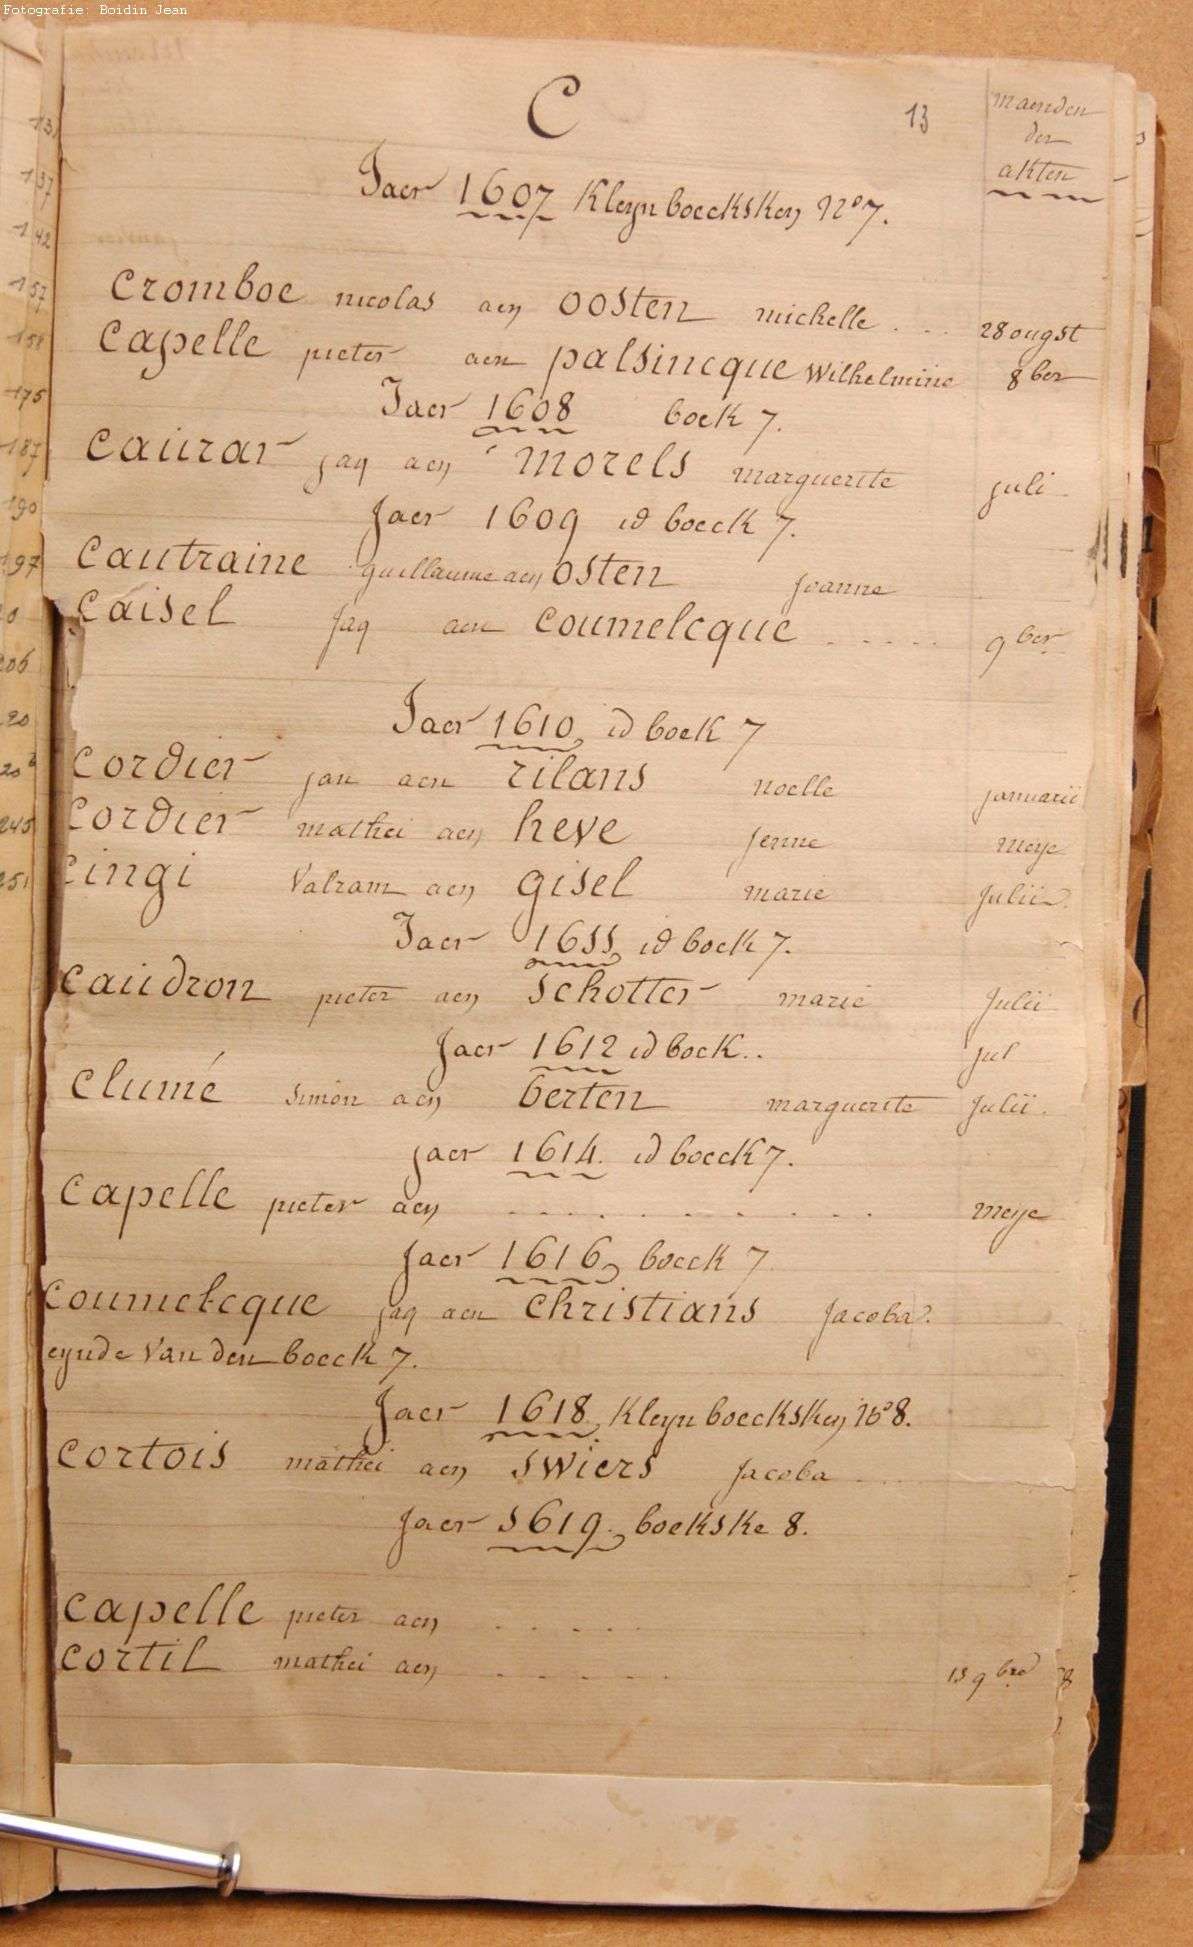 Fotografie: Boidin Jean
C
13
maenden
der
akten
Jaer 1607 Kleyn boecksken Nº 7.
Cromboe nicolas aen oosten michelle . . . 28 ougst
Capelle pieter aen palsincque Wilhelmine 8ber
Jaer 1608 boek 7.
Caurar jaq aen morels marguerite juli
Jaer 1609 id boeck 7.
Cautraine guillaume aen osten Joanne
Caisel Jaq aen Coumelcque . . . . . 9ber
Jaer 1610 id boek 7
Cordier jan aen rilans noelle januarii
Cordier mathei aen heve Jenne meye
Cingi Valram aen gisel marie Julii
Jaer 1611 id boek 7.
Caudron pieter aen schotter marie Julii
Jaer 1612 id boek . . jul
Clumé simon aen berten marguerite Julii.
jaer 1614. id boeck 7.
Capelle pieter aen . . . . . . . . . . meye
Jaer 1616 boeck 7
Coumelcque jaq aen Christians Jacoba.
eynde Van den boeck 7.
Jaer 1618 Kleyn boecksken Nº 8.
Cortois mathei aen swiers Jacoba
Jaer 1619. boekske 8.
Capelle pieter aen . . . . .
Cortil mathei aen . . . . . . 15 9bre
131
137
142
157
158
175
187
190
197
206
20
245
251